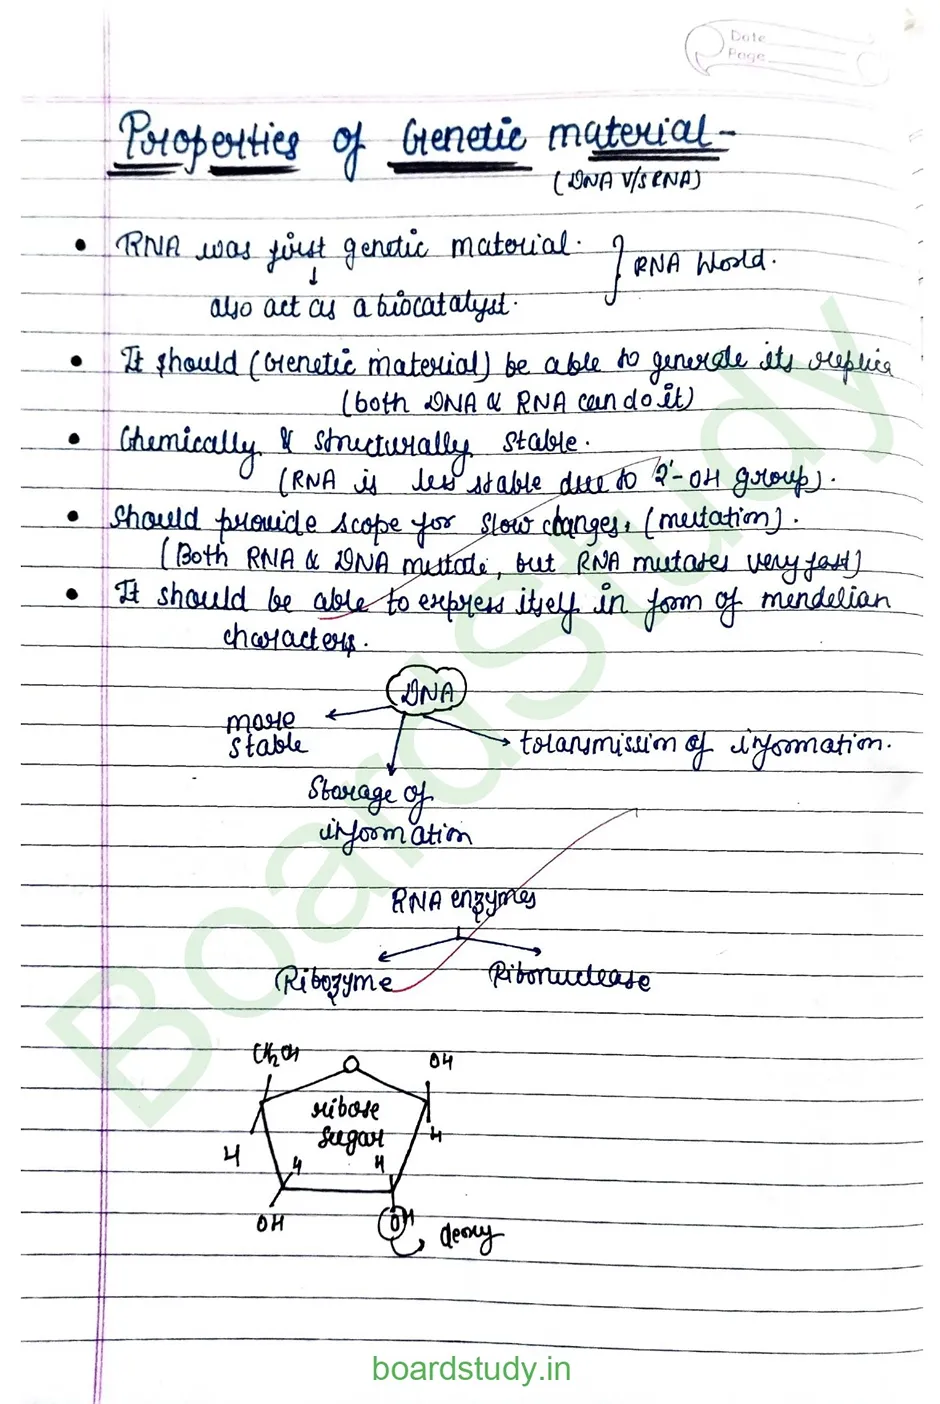 Date
Page
Properties of Genetic material -
(DNA v/s RNA)
• RNA was first genetic material. } RNA World.
↓
also act as a biocatalyst.
• It should (Genetic material) be able to generate its replica
(both DNA & RNA can do it)
• Chemically & structurally stable.
(RNA is less stable due to 2'-OH group).
• Should provide scope for slow changes. (mutation).
(Both RNA & DNA mutate, but RNA mutates very fast)
• It should be able to express itself in form of mendelian
characters.
DNA
more
stable
transmission of information.
Storage of
information
RNA enzymes
Ribozyme
Ribonuclease
CH2OH
O
OH
ribose
sugar
H
H
H
H
OH
OH
deoxy
BoardStudy
boardstudy.in